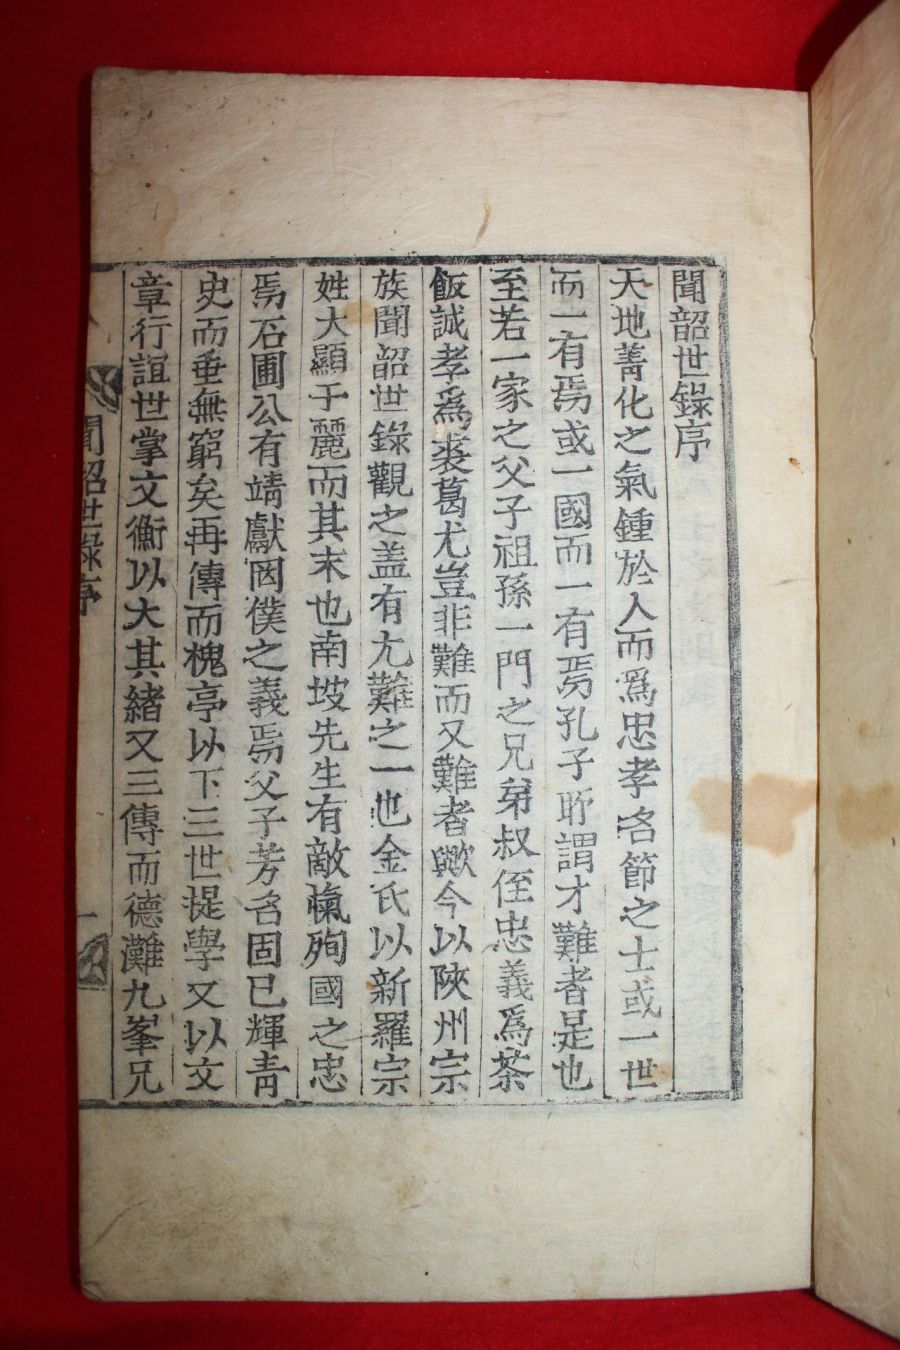 聞韶世錄序
天地菁化之氣鍾於人而爲忠孝名節之士或一世
而一有焉或一國而一有焉孔子所謂才難者是也
至若一家之父子祖孫一門之兄弟叔侄忠義爲茶
飯誠孝爲裘葛尤豈非難而又難者歟今以陜州宗
族聞韶世錄觀之盖有尤難之一也金氏以新羅宗
姓大顯于麗而其末也南坡先生有敵愾殉國之忠
焉石圃公有靖獻罔僕之義焉父子芳名固已輝靑
史而垂無窮矣再傳而槐亭以下三世提學又以文
章行誼世掌文衡以大其緖又三傳而德灘九峯兄
聞韶世錄序
一